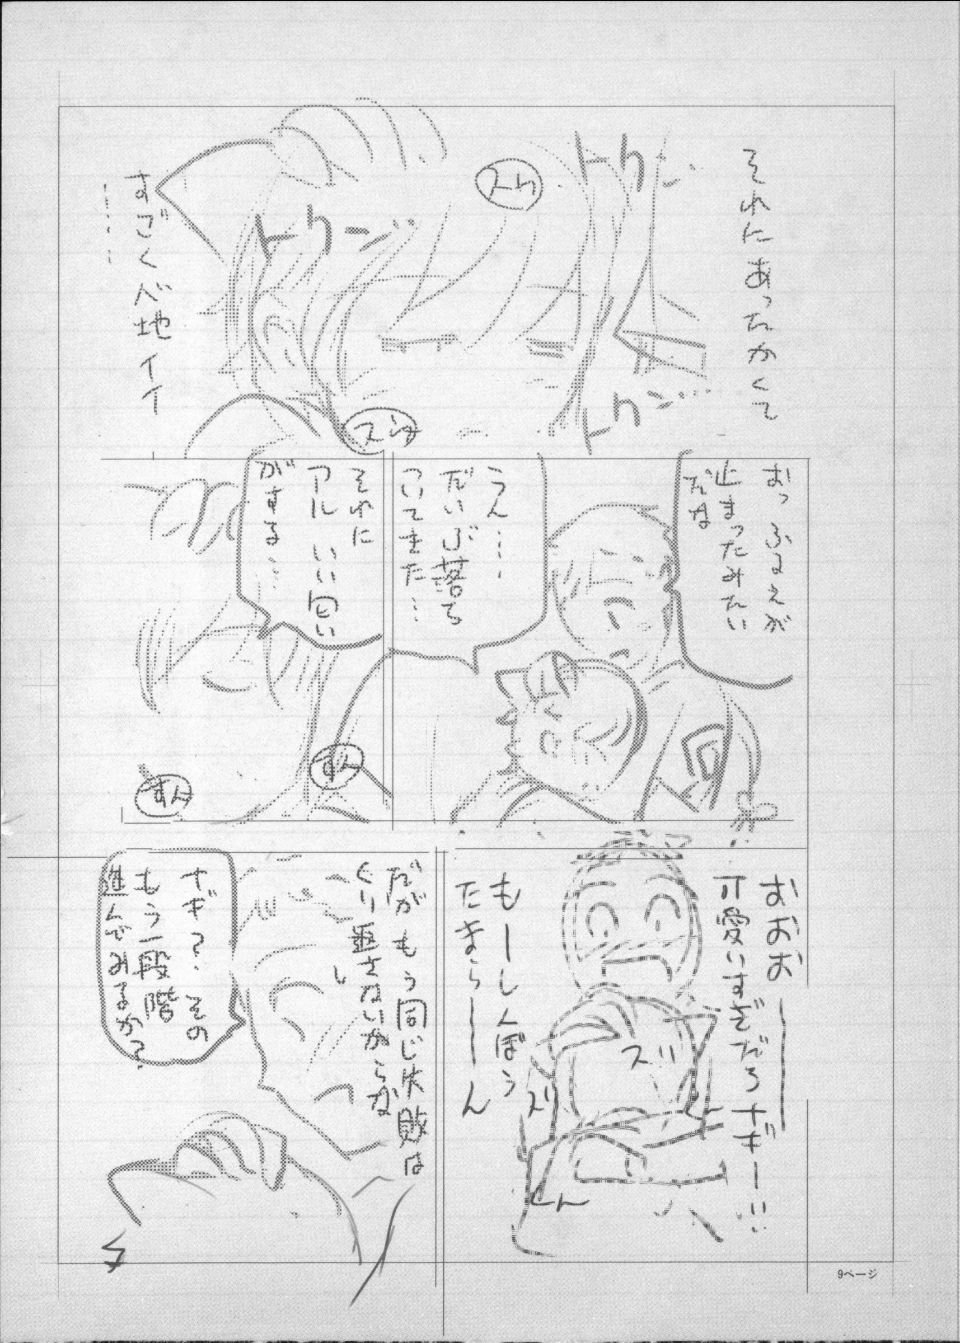 それにあったかくて
トクン…
スウ
トクン…
トクン…
スウ
すごくべ地イイ
……
おっ ふるえが
止まったみたい
だな
うん…
だいぶ落ち
ついてきた…
それに
アル いい匂い
がする…
すん
すん
おおおー
可愛いすぎだろナギー!!
もーしんぼう
たまらーん
ズリ
ズ
だが もう同じ失敗は
くり返さないからな
ナギ?その
もう一段階
進んでみるか?
9ページ